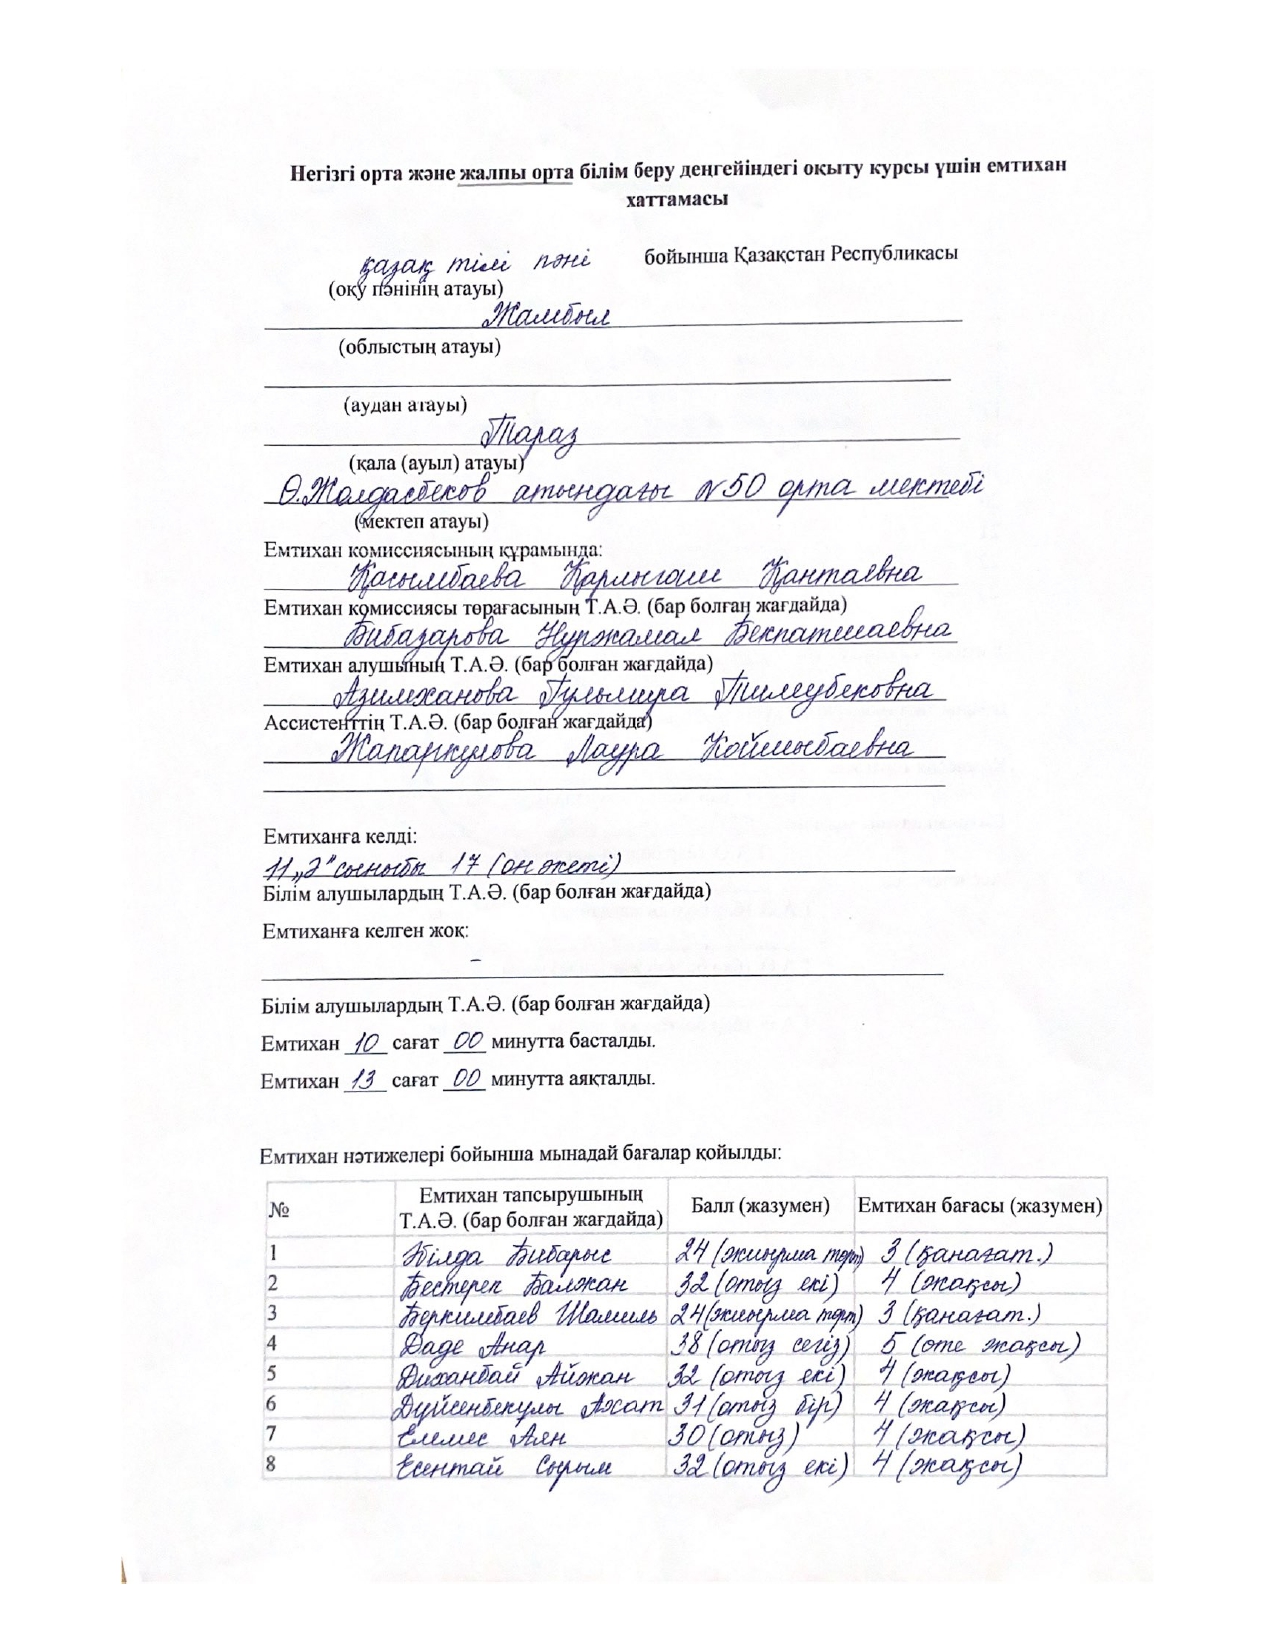 Негізгі орта және жалпы орта білім беру деңгейіндегі оқыту курсы үшін емтихан
хаттамасы
қазақ тілі пәні бойынша Қазақстан Республикасы
(оқу пәнінің атауы)
Жамбыл
(облыстың атауы)
(аудан атауы)
Тараз
(қала (ауыл) атауы)
Ө.Жолдасбеков атындағы №50 орта мектебі
(мектеп атауы)
Емтихан комиссиясының құрамында:
Қасымбаева Қарлығаш Қантаевна
Емтихан комиссиясы төрағасының Т.А.Ә. (бар болған жағдайда)
Бибазарова Нуржамал Бекпатшаевна
Емтихан алушының Т.А.Ә. (бар болған жағдайда)
Азимханова Гульмира Тилеубековна
Ассистенттің Т.А.Ә. (бар болған жағдайда)
Жапаркулова Лаура Койшыбаевна
Емтиханға келді:
11 „Ә" сыныбы 17 (он жеті)
Білім алушылардың Т.А.Ә. (бар болған жағдайда)
Емтиханға келген жоқ:
–
Білім алушылардың Т.А.Ә. (бар болған жағдайда)
Емтихан 10 сағат 00 минутта басталды.
Емтихан 13 сағат 00 минутта аяқталды.
Емтихан нәтижелері бойынша мынадай бағалар қойылды:
№ Емтихан тапсырушының Т.А.Ә. (бар болған жағдайда) Балл (жазумен) Емтихан бағасы (жазумен)
1 Әбілда Бибарыс 24 (жиырма төрт) 3 (қанағат.)
2 Бестерек Балжан 32 (отыз екі) 4 (жақсы)
3 Беркимбаев Шамиль 24 (жиырма төрт) 3 (қанағат.)
4 Даде Анар 38 (отыз сегіз) 5 (өте жақсы)
5 Диханбай Айжан 32 (отыз екі) 4 (жақсы)
6 Дүйсенбекұлы Ахат 31 (отыз бір) 4 (жақсы)
7 Елемес Аян 30 (отыз) 4 (жақсы)
8 Есентай Сырым 32 (отыз екі) 4 (жақсы)